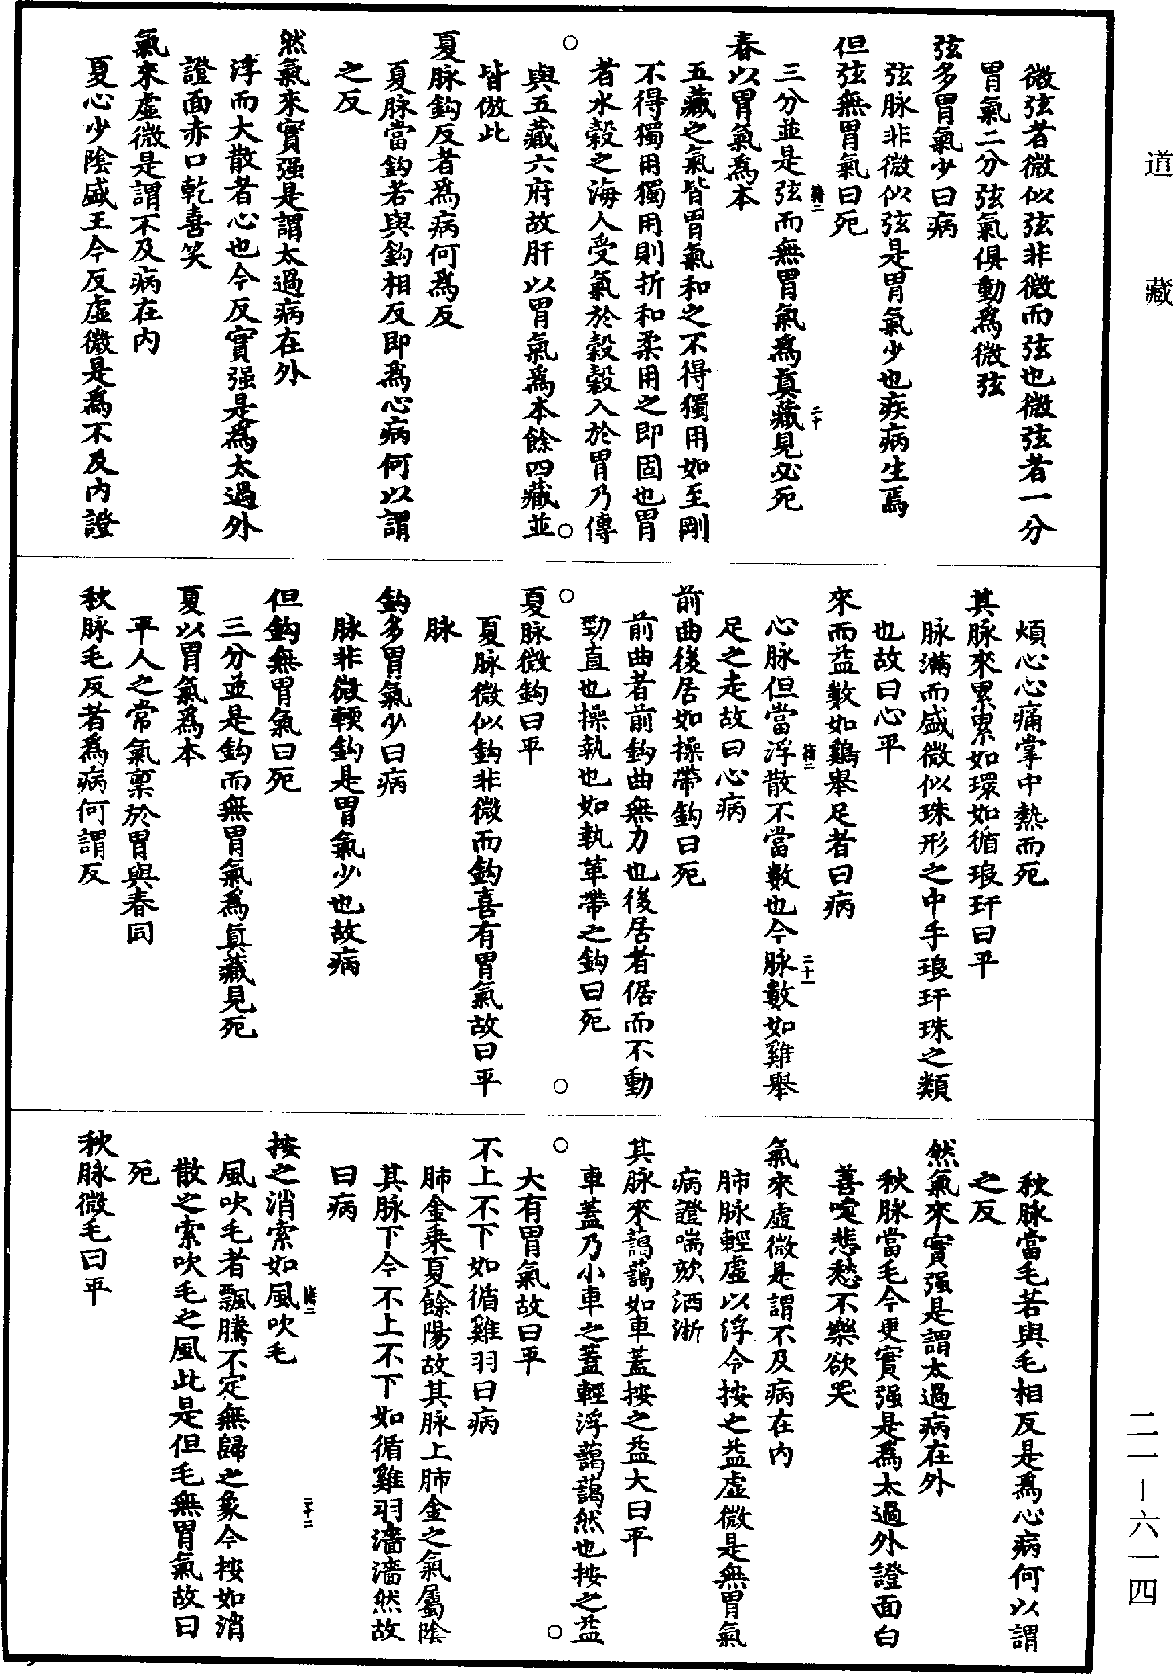 道藏
微弦者微似弦非微而弦也微弦者一分
胃氣二分弦氣俱動為微弦
弦多胃氣少曰病
弦脉非微似弦是胃氣少也疾病生焉
但弦無胃氣曰死
三分並是弦而無胃氣為真藏見必死
春以胃氣為本
五藏之氣皆胃氣和之不得獨用如至剛
不得獨用獨用則折和柔用之即固也胃
者水穀之海人受氣於穀穀入於胃乃傳
與五藏六府故肝以胃氣為本餘四藏並
皆倣此
夏脉鈎反者為病何為反
夏脉當鈎若與鈎相反即為心病何以謂
之反
然氣來實强是謂太過病在外
浮而大散者心也今反實强是為太過外
證面赤口乾喜笑
氣來虛微是謂不及病在内
夏心少陰盛王今反虛微是為不及内證
煩心心痛掌中熱而死
其脉來累累如環如循琅玕曰平
脉滿而盛微似珠形之中手琅玕珠之類
也故曰心平
來而益數如鷄舉足者曰病
心脉但當浮散不當數也今脉數如雞舉
足之走故曰心病
前曲後居如操帶鈎曰死
前曲者前鈎曲無力也後居者倨而不動
勁直也操執也如執革帶之鈎曰死
夏脉微鈎曰平
夏脉微似鈎非微而鈎喜有胃氣故曰平
脉
鈎多胃氣少曰病
脉非微輭鈎是胃氣少也故病
但鈎無胃氣曰死
三分並是鈎而無胃氣為真藏見死
夏以胃氣為本
平人之常氣稟於胃與春同
秋脉毛反者為病何謂反
秋脉當毛若與毛相反是為心病何以謂
之反
然氣來實强是謂太過病在外
秋脉當毛今更實强是為太過外證面白
善嚏悲愁不樂欲哭
氣來虛微是謂不及病在内
肺脉輕虛以浮今按之益虛微是無胃氣
病證喘欬洒淅
其脉來藹藹如車蓋按之益大曰平
車蓋乃小車之蓋輕浮藹藹然也按之益
大有胃氣故曰平
不上不下如循雞羽曰病
肺金乘夏餘陽故其脉上肺金之氣屬陰
其脉下今不上不下如循雞羽濇濇然故
曰病
按之消索如風吹毛
風吹毛者飄騰不定無歸之象今按如消
散之索吹毛之風此是但毛無胃氣故曰
死
秋脉微毛曰平
二一—六一四